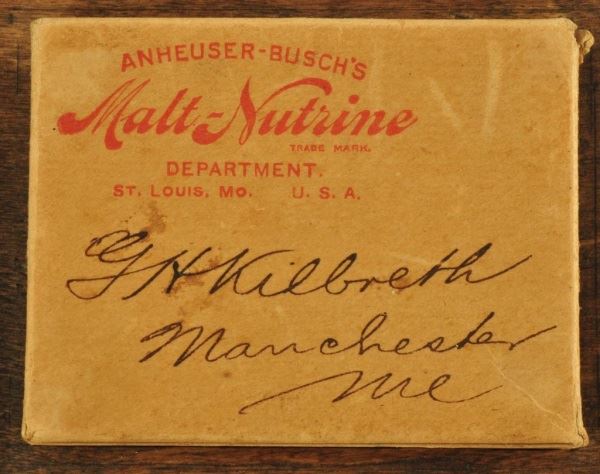 ANHEUSER-BUSCH'S
Malt-Nutrine
TRADE MARK.
DEPARTMENT.
ST. LOUIS, MO. U. S. A.
G H Kilbreth
Manchester
Me